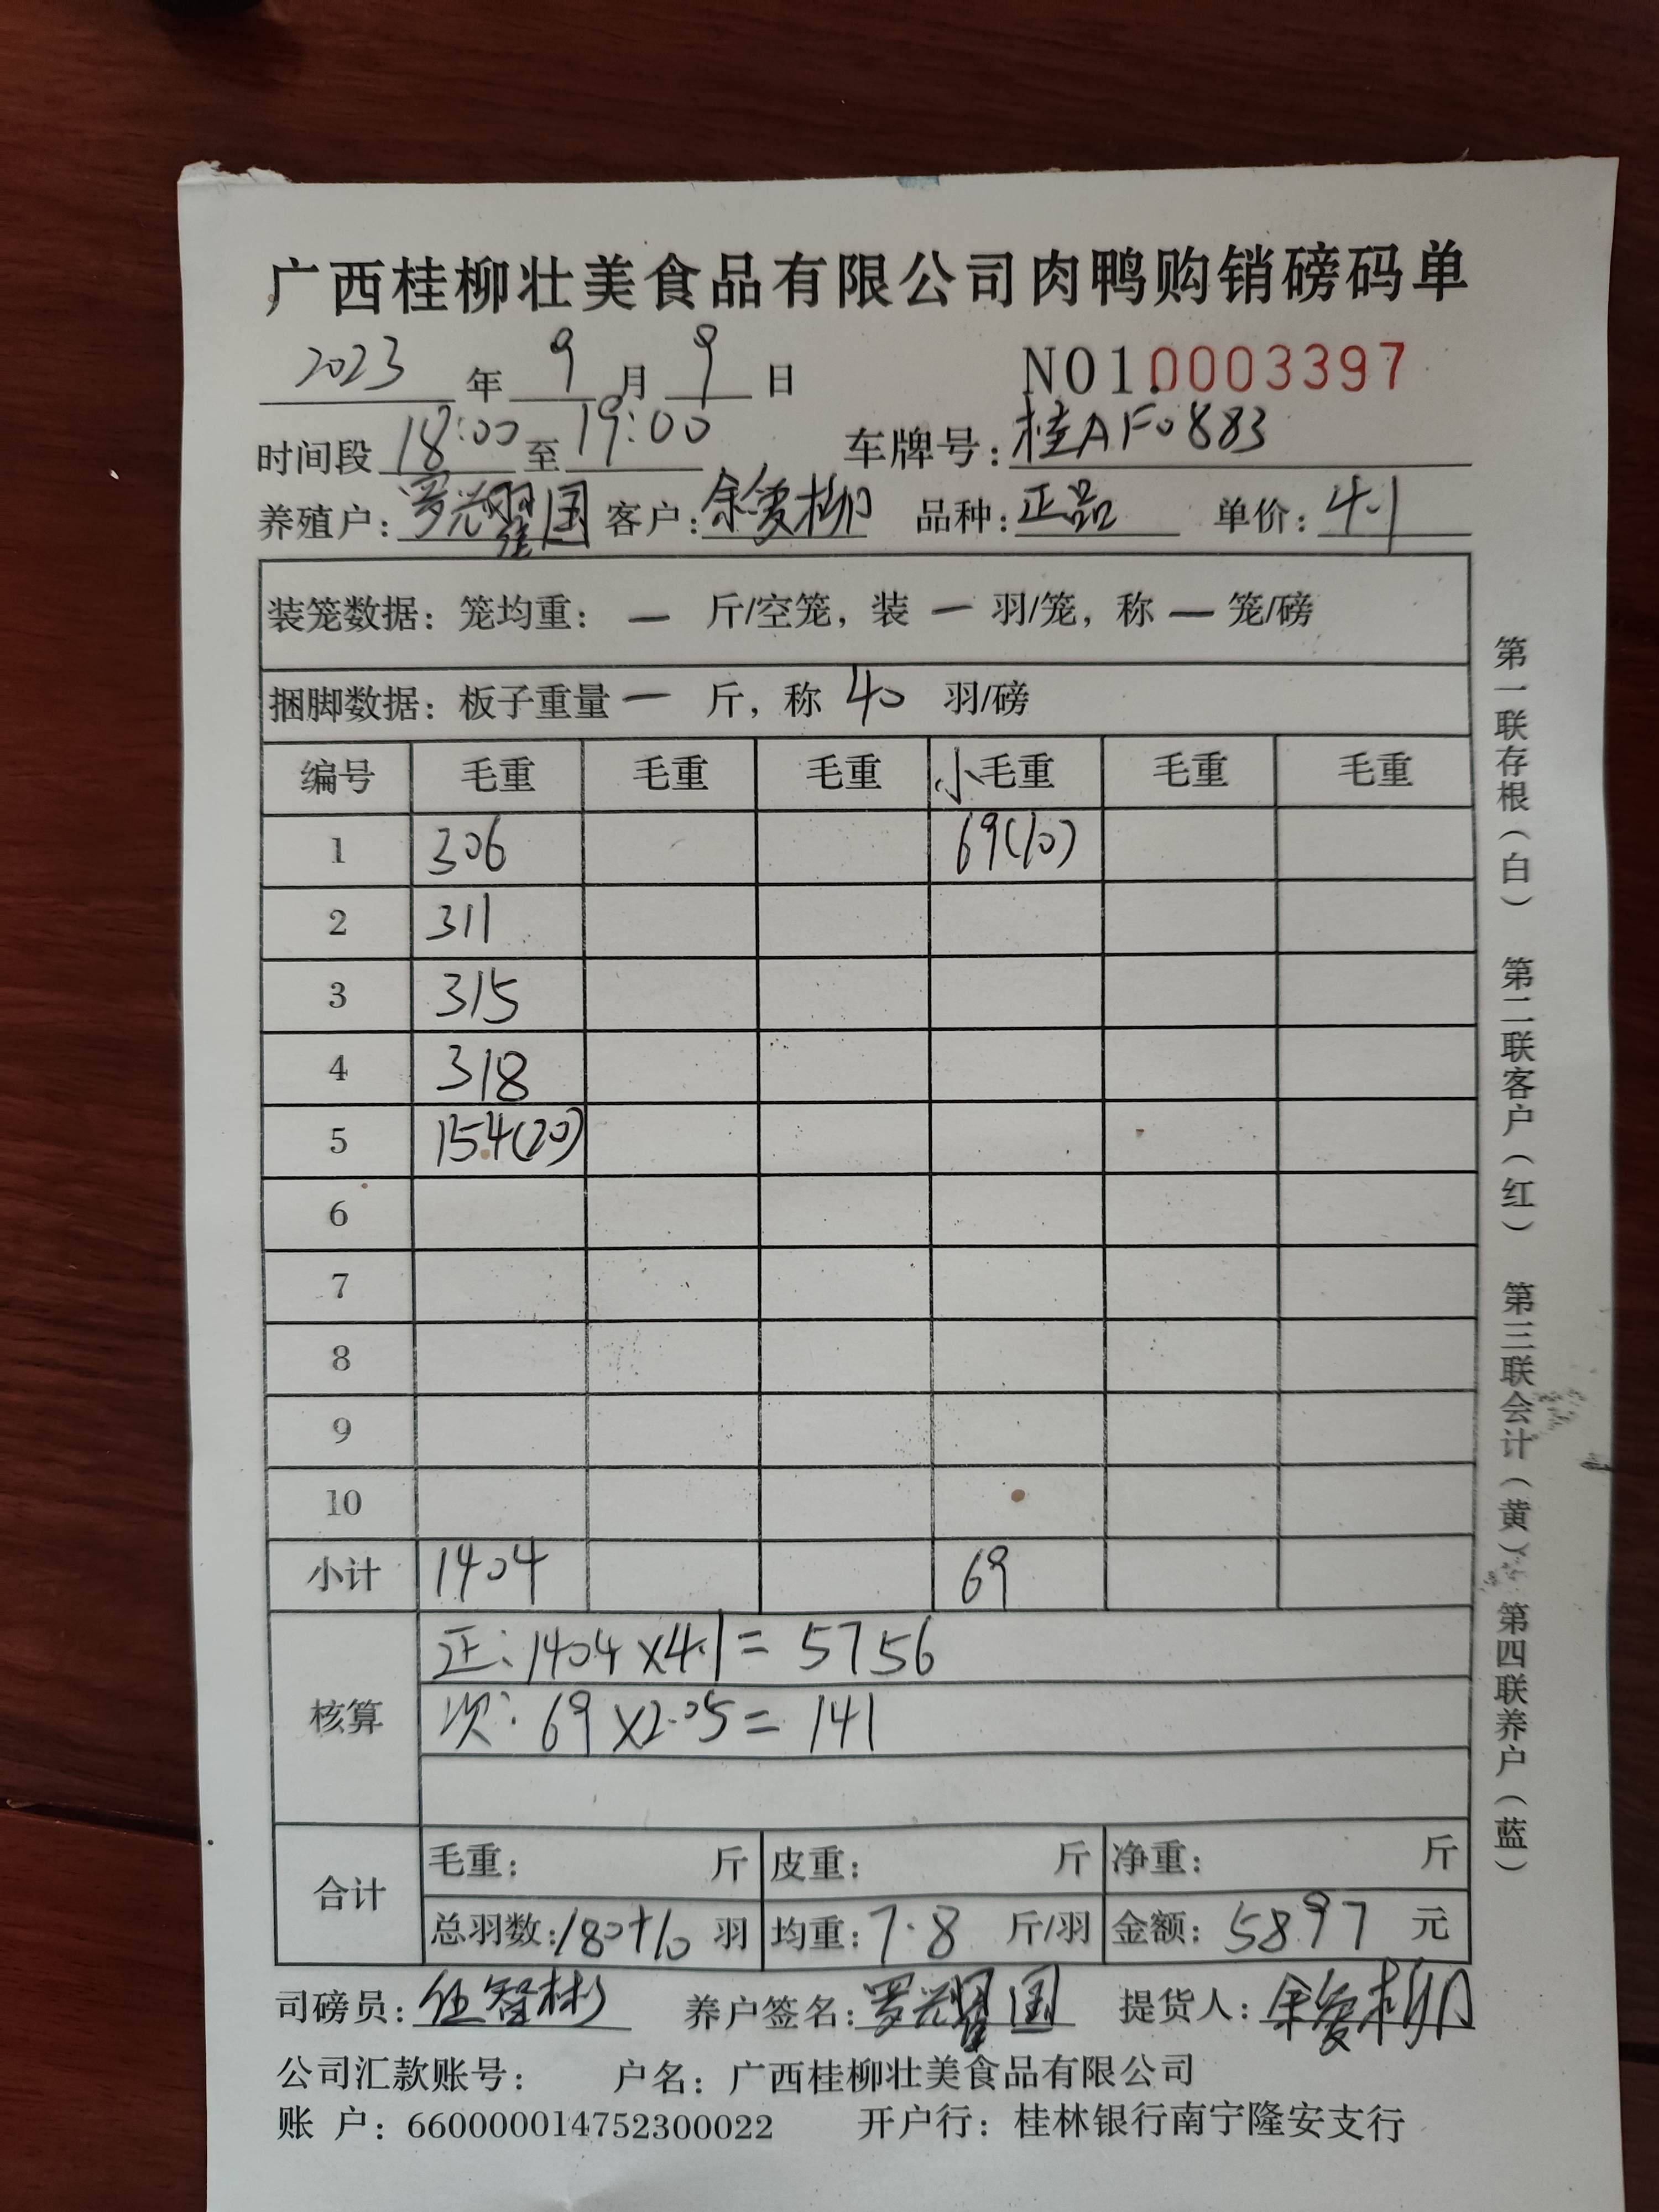 广西桂柳壮美食品有限公司肉鸭购销磅码单
2023 年 9 月 9 日 NO1.0003397
时间段 18:00 至 19:00 车牌号：桂AF0883
养殖户：罗耀国 客户：余爱柳 品种：正品 单价：4.1
装笼数据：笼均重：— 斤/空笼，装 — 羽/笼，称 — 笼/磅
捆脚数据：板子重量 — 斤，称 40 羽/磅
编号 毛重 毛重 毛重 小毛重 毛重 毛重
1 306 69(10)
2 311
3 315
4 318
5 154(20)
6
7
8
9
10
小计 1404 69
核算 正：1404×4.1=5756
次：69×2.05=141
合计 毛重： 斤 皮重： 斤 净重： 斤
总羽数：180+10 羽 均重：7.8 斤/羽 金额：5897 元
司磅员：伍智彬 养户签名：罗耀国 提货人：余爱柳
公司汇款账号： 户名：广西桂柳壮美食品有限公司
账 户：660000014752300022 开户行：桂林银行南宁隆安支行
第一联存根（白） 第二联客户（红） 第三联会计（黄） 第四联养户（蓝）